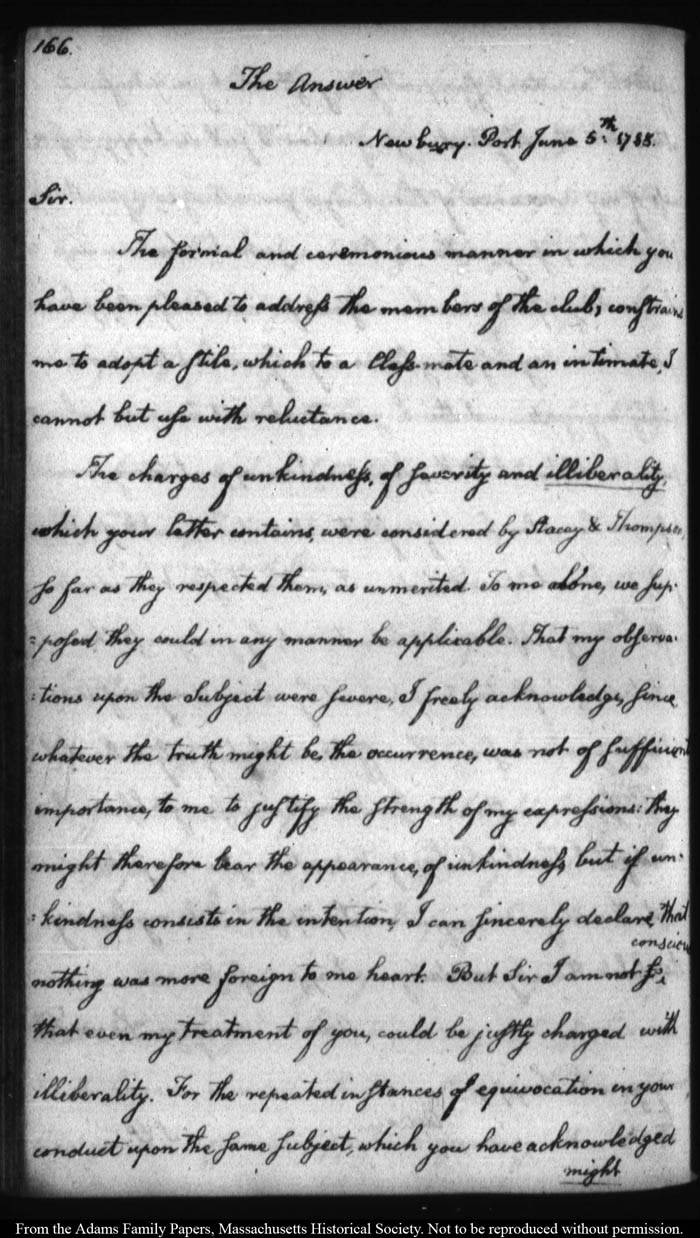 166.
The Answer
Newbury-Port June 5.th 1788.
Sir.
The formal and ceremonious manner in which you
have been pleased to address the members of the club, constrains
me to adopt a stile, which to a Class-mate and an intimate, I
cannot but use with reluctance.
The charges of unkindness, of severity and illiberality,
which your letter contains, were considered by Stacey & Thompson,
so far as they respected them, as unmerited. To me alone, we sup-
=posed they could in any manner be applicable. That my observa-
:tions upon the Subject were severe, I freely acknowledge, since,
whatever the truth might be, the occurrence, was not of sufficient
importance, to me to justify the strength of my expressions: they
might therefore bear the appearance, of unkindness, but if un-
:kindness consists in the intention, I can sincerely declare, that
conscious
nothing was more foreign to me heart. But Sir I am not
that even my treatment of you, could be justly charged with
illiberality. For the repeated instances of equivocation in your
conduct upon the same subject, which you have acknowledged
might
From the Adams Family Papers, Massachusetts Historical Society. Not to be reproduced without permission.